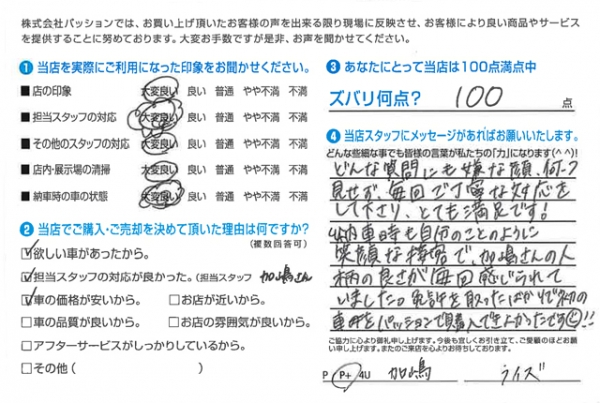 株式会社パッションでは、お買い上げ頂いたお客様の声を出来る限り現場に反映させ、お客様により良い商品やサービス
を提供することに努めております。大変お手数ですが是非、お声を聞かせてください。
1 当店を実際にご利用になった印象をお聞かせください。
■ 店の印象 大変良い 良い 普通 やや不満 不満
■ 担当スタッフの対応 大変良い 良い 普通 やや不満 不満
■ その他のスタッフの対応 大変良い 良い 普通 やや不満 不満
■ 店内・展示場の清掃 大変良い 良い 普通 やや不満 不満
■ 納車時の車の状態 大変良い 良い 普通 やや不満 不満
2 当店でご購入・ご売却を決めて頂いた理由は何ですか?
(複数回答可)
☑欲しい車があったから。
☑担当スタッフの対応が良かった。(担当スタッフ 加嶋さん
☑車の価格が安いから。 □お店が近いから。
□車の品質が良いから。 □お店の雰囲気が良いから。
□アフターサービスがしっかりしているから。
□その他( )
3 あなたにとって当店は100点満点中
ズバリ何点? 100 点
4 当店スタッフにメッセージがあればお願いいたします。
どんな些細な事でも皆様の言葉が私たちの「力」になります(^^)!
どんな質問にも嫌な顔、何一つ
見せず、毎回丁寧な対応を
して下さり、とても満足です!
納車時も自分のことのように
笑顔な接客で、加嶋さんの人
柄の良さが毎回感じられて
いました。免許を取ったばかりで初の
車をパッションで購入できよかったです!!
ご協力に心より御礼申し上げます。今後も宜しくお引き立て、ご愛顧のほどお願
い申し上げます。またのご来店を心よりお待ちしております。
P P+ 4U 加嶋 ライズ